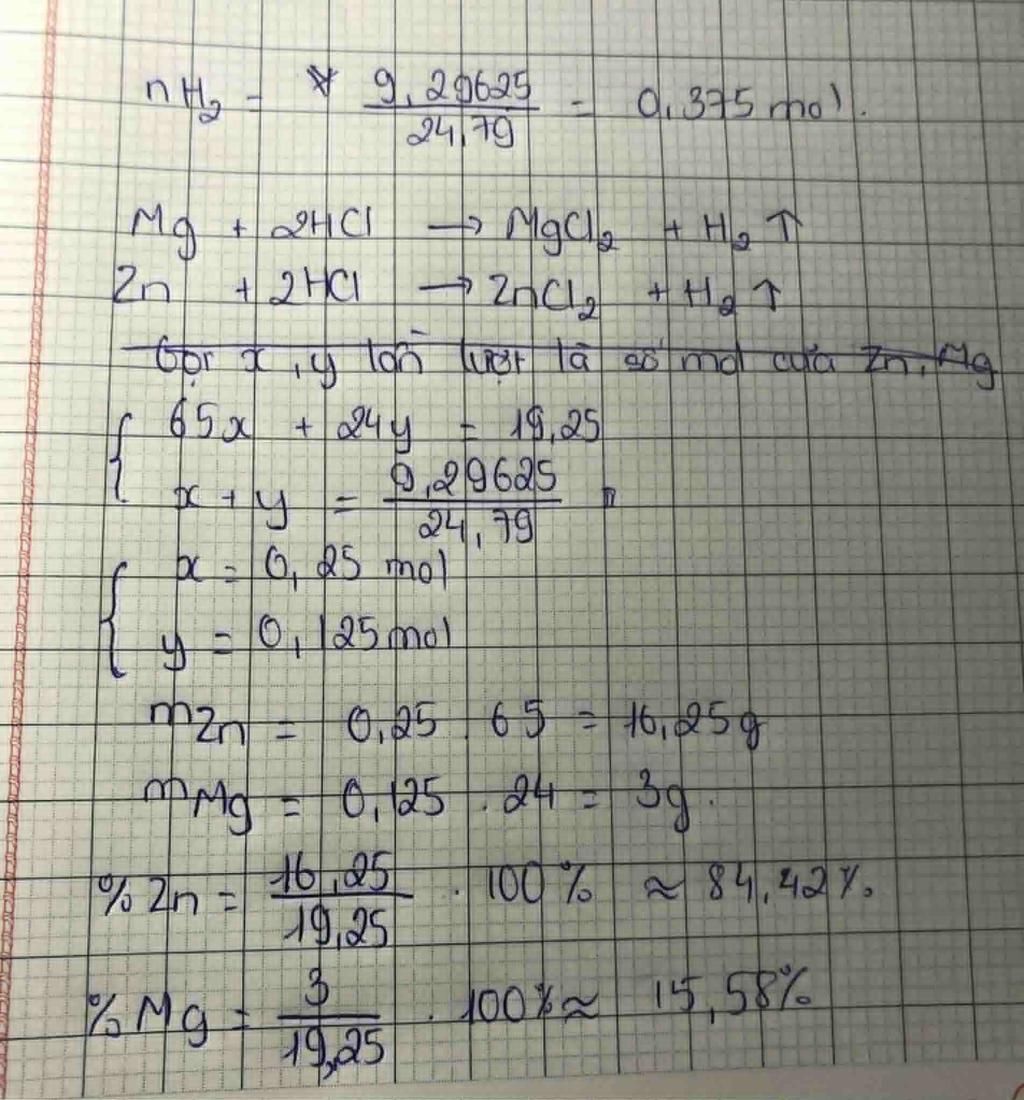 nH₂ = 9,29625/24,79 = 0,375 mol.
Mg + 2HCl → MgCl₂ + H₂ ↑
Zn + 2HCl → ZnCl₂ + H₂ ↑
Gọi x, y lần lượt là số mol của Zn, Mg
65x + 24y = 19,25
x + y = 9,29625/24,79
x = 0,25 mol
y = 0,125 mol
mZn = 0,25 . 65 = 16,25g
mMg = 0,125 . 24 = 3g.
%Zn = 16,25/19,25 . 100% ≈ 84,42%.
%Mg = 3/19,25 . 100% ≈ 15,58%